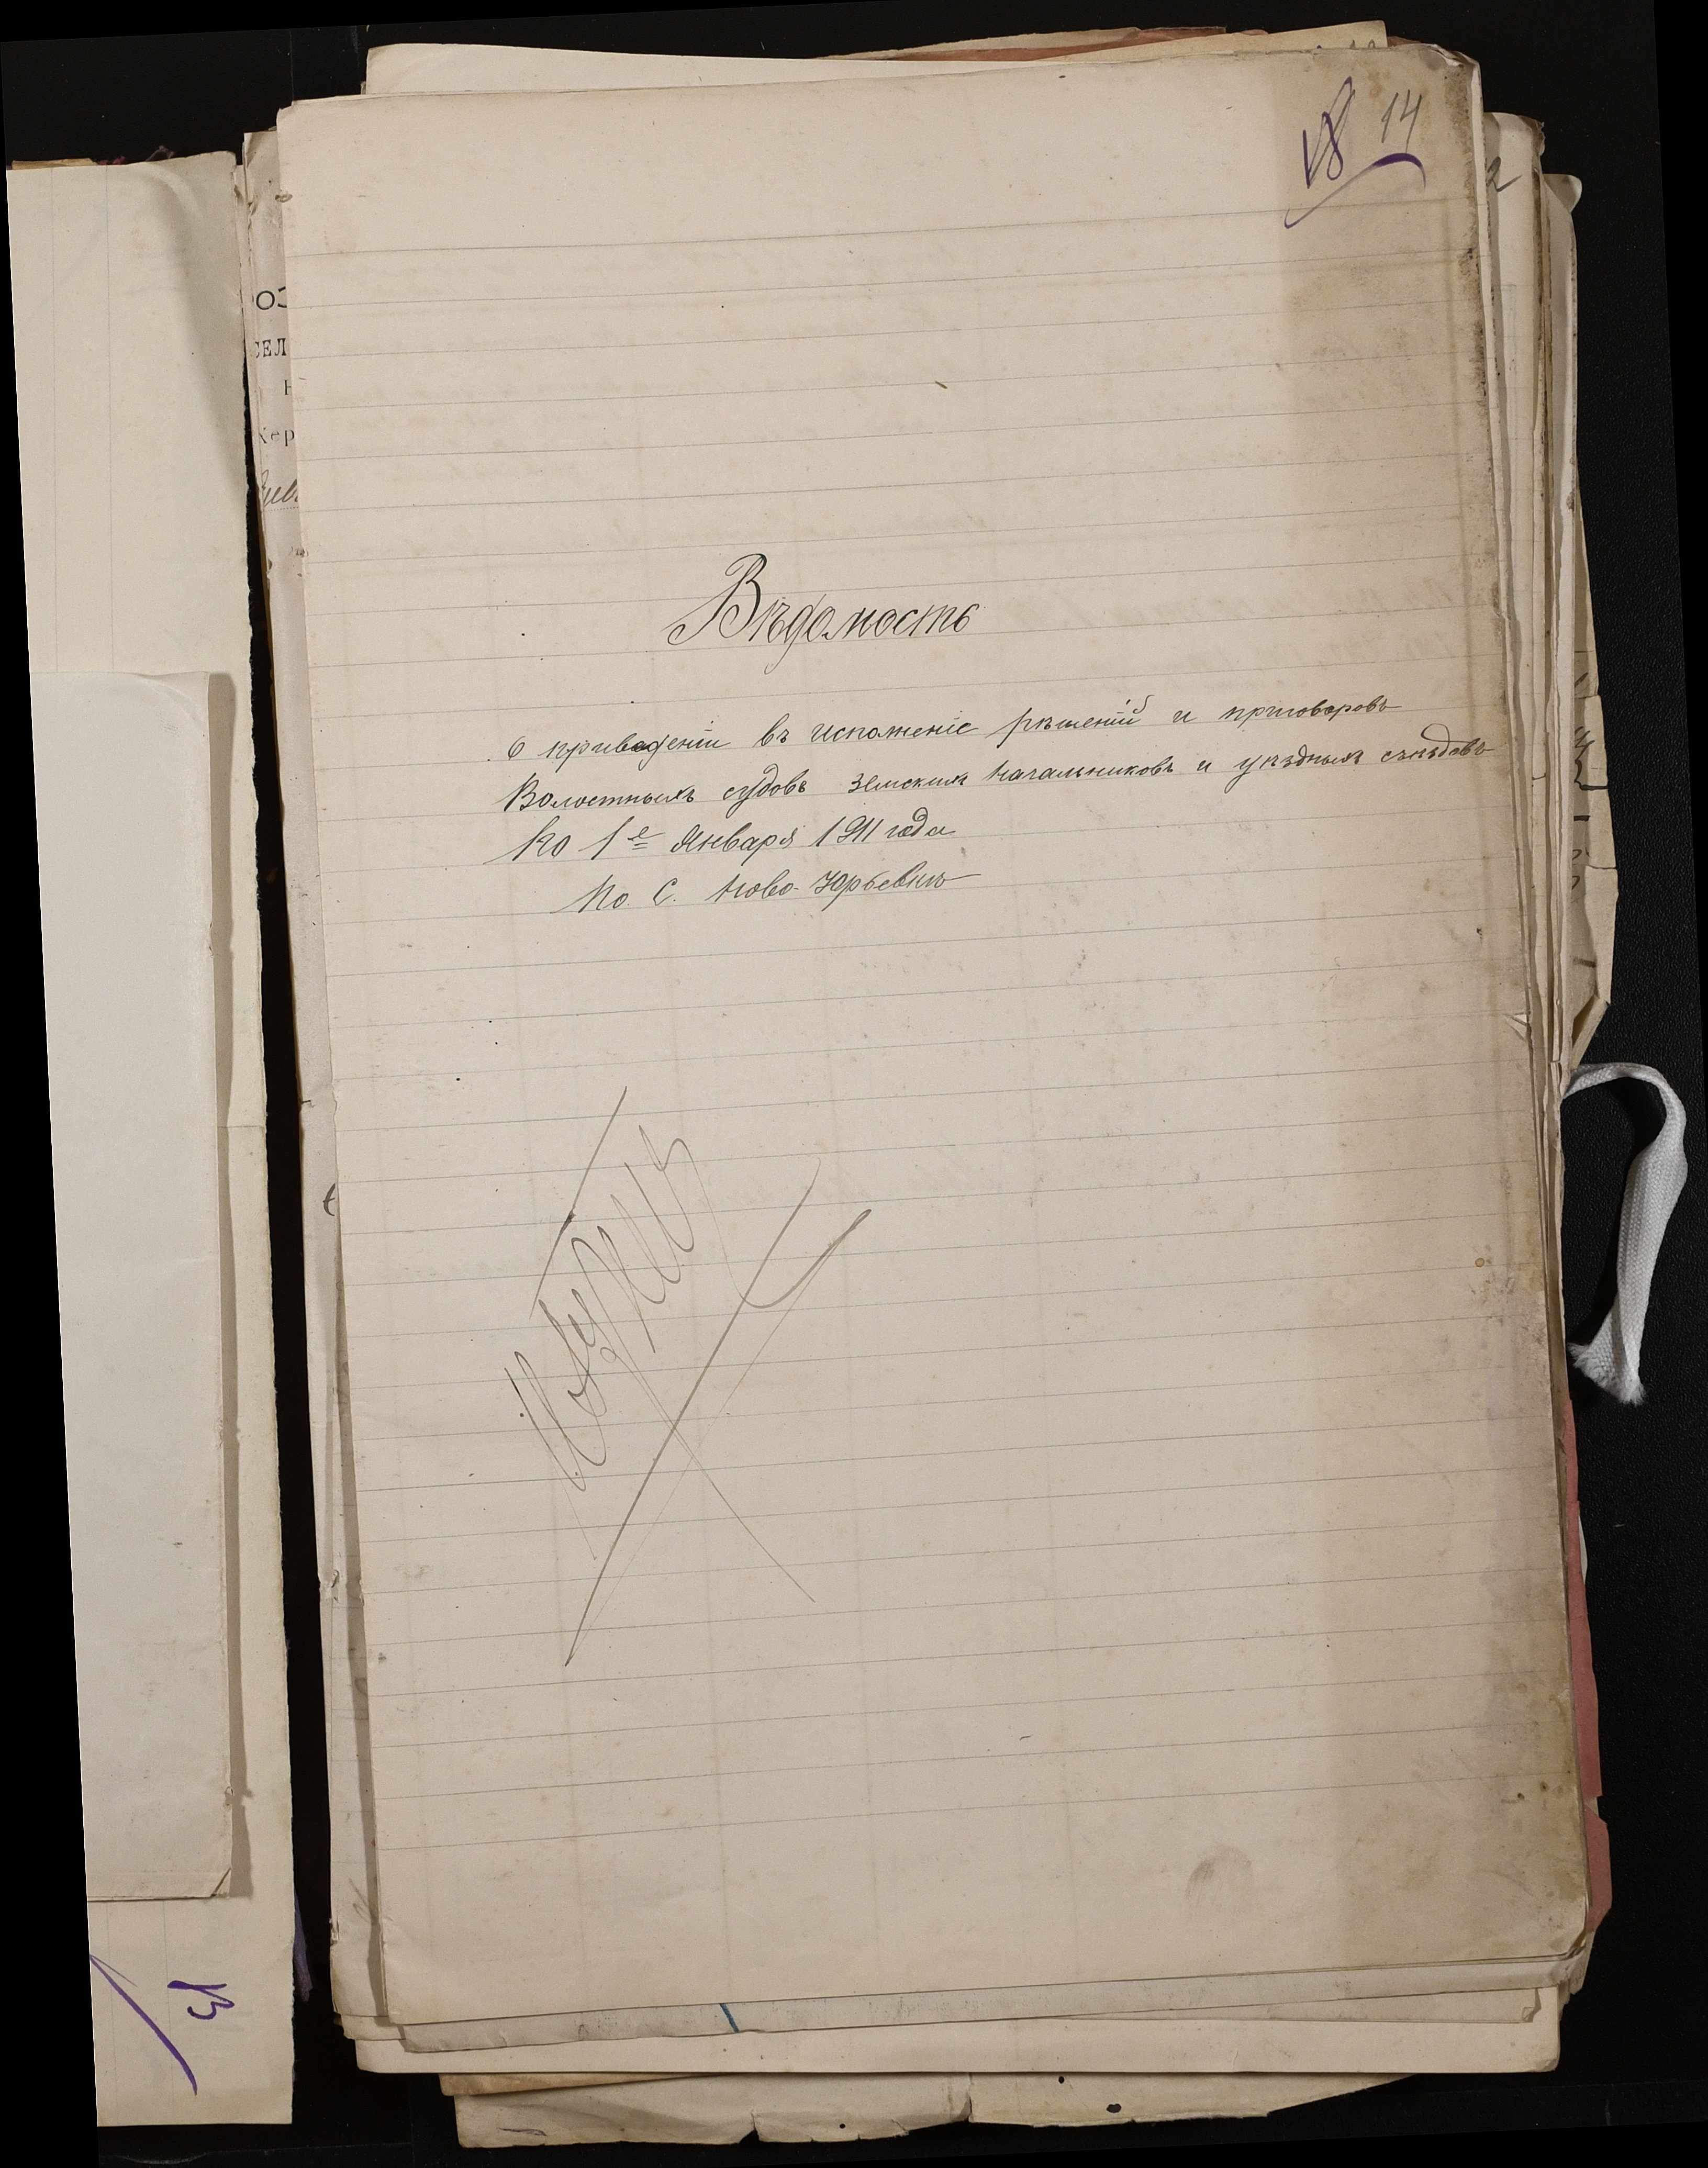 18 14
2
Вѣдомость
О приведеніи въ исполненіе рѣшеній и приговоровъ
Волостныхъ судовъ Земскихъ Начальниковъ и уѣздныхъ съѣздовъ
Ко 1е Января 1911 года
По С. Ново-Юрьевкѣ
СЕЛ
Кер
13